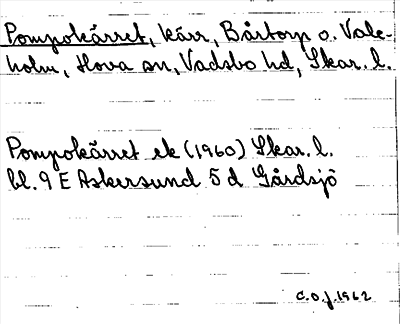 Pompokärret, kärr, Båtorp o. Vale-
holm, Hova sn, Vadsbo hd, Skar. l.
Pompokärret ek (1960) Skar. l.
bl. 9 E Askersund 5 d Gårdsjö
C.O.J. 1962